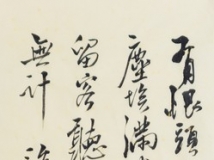 有恨頭
塵埃滿
留客聽
無計